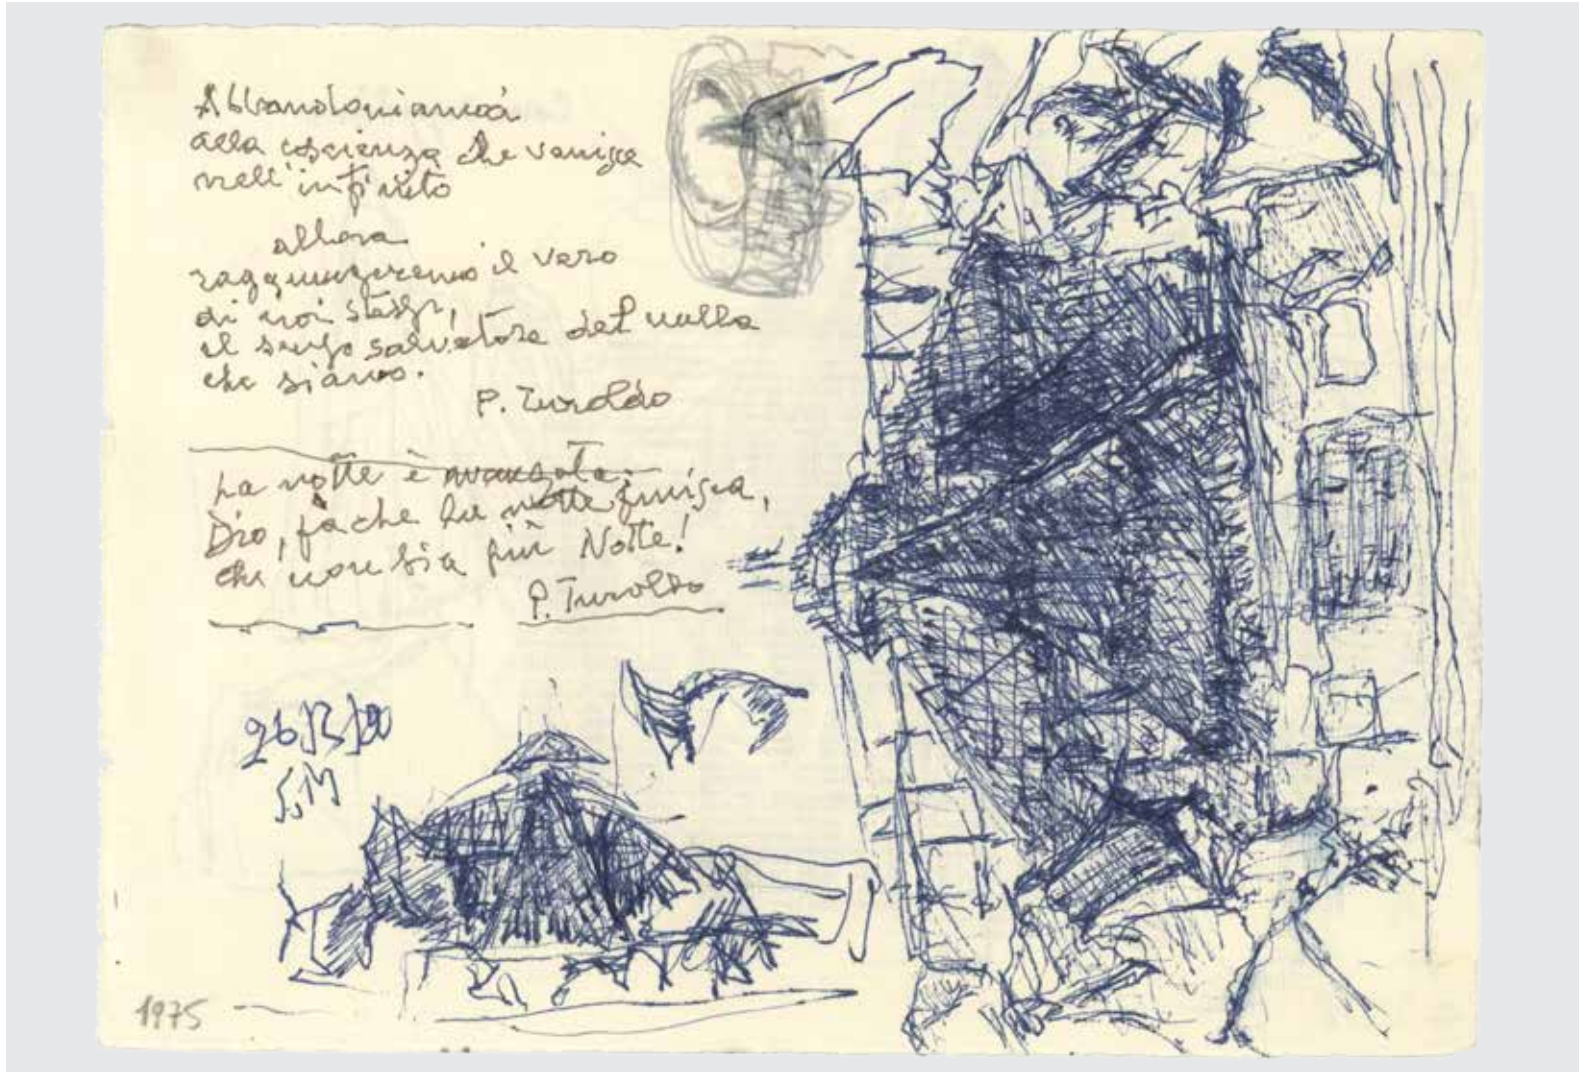 Abbandoniamoci
alla coscienza che vanisce
nell'infinito
allora
raggiungeremo il vero
di noi stessi,
il senso salvatore del nulla
che siamo.
P. Turoldo
La notte è avanzata;
Dio, fa che la notte finisca,
che non sia più Notte!
P. Turoldo
S.M
1975